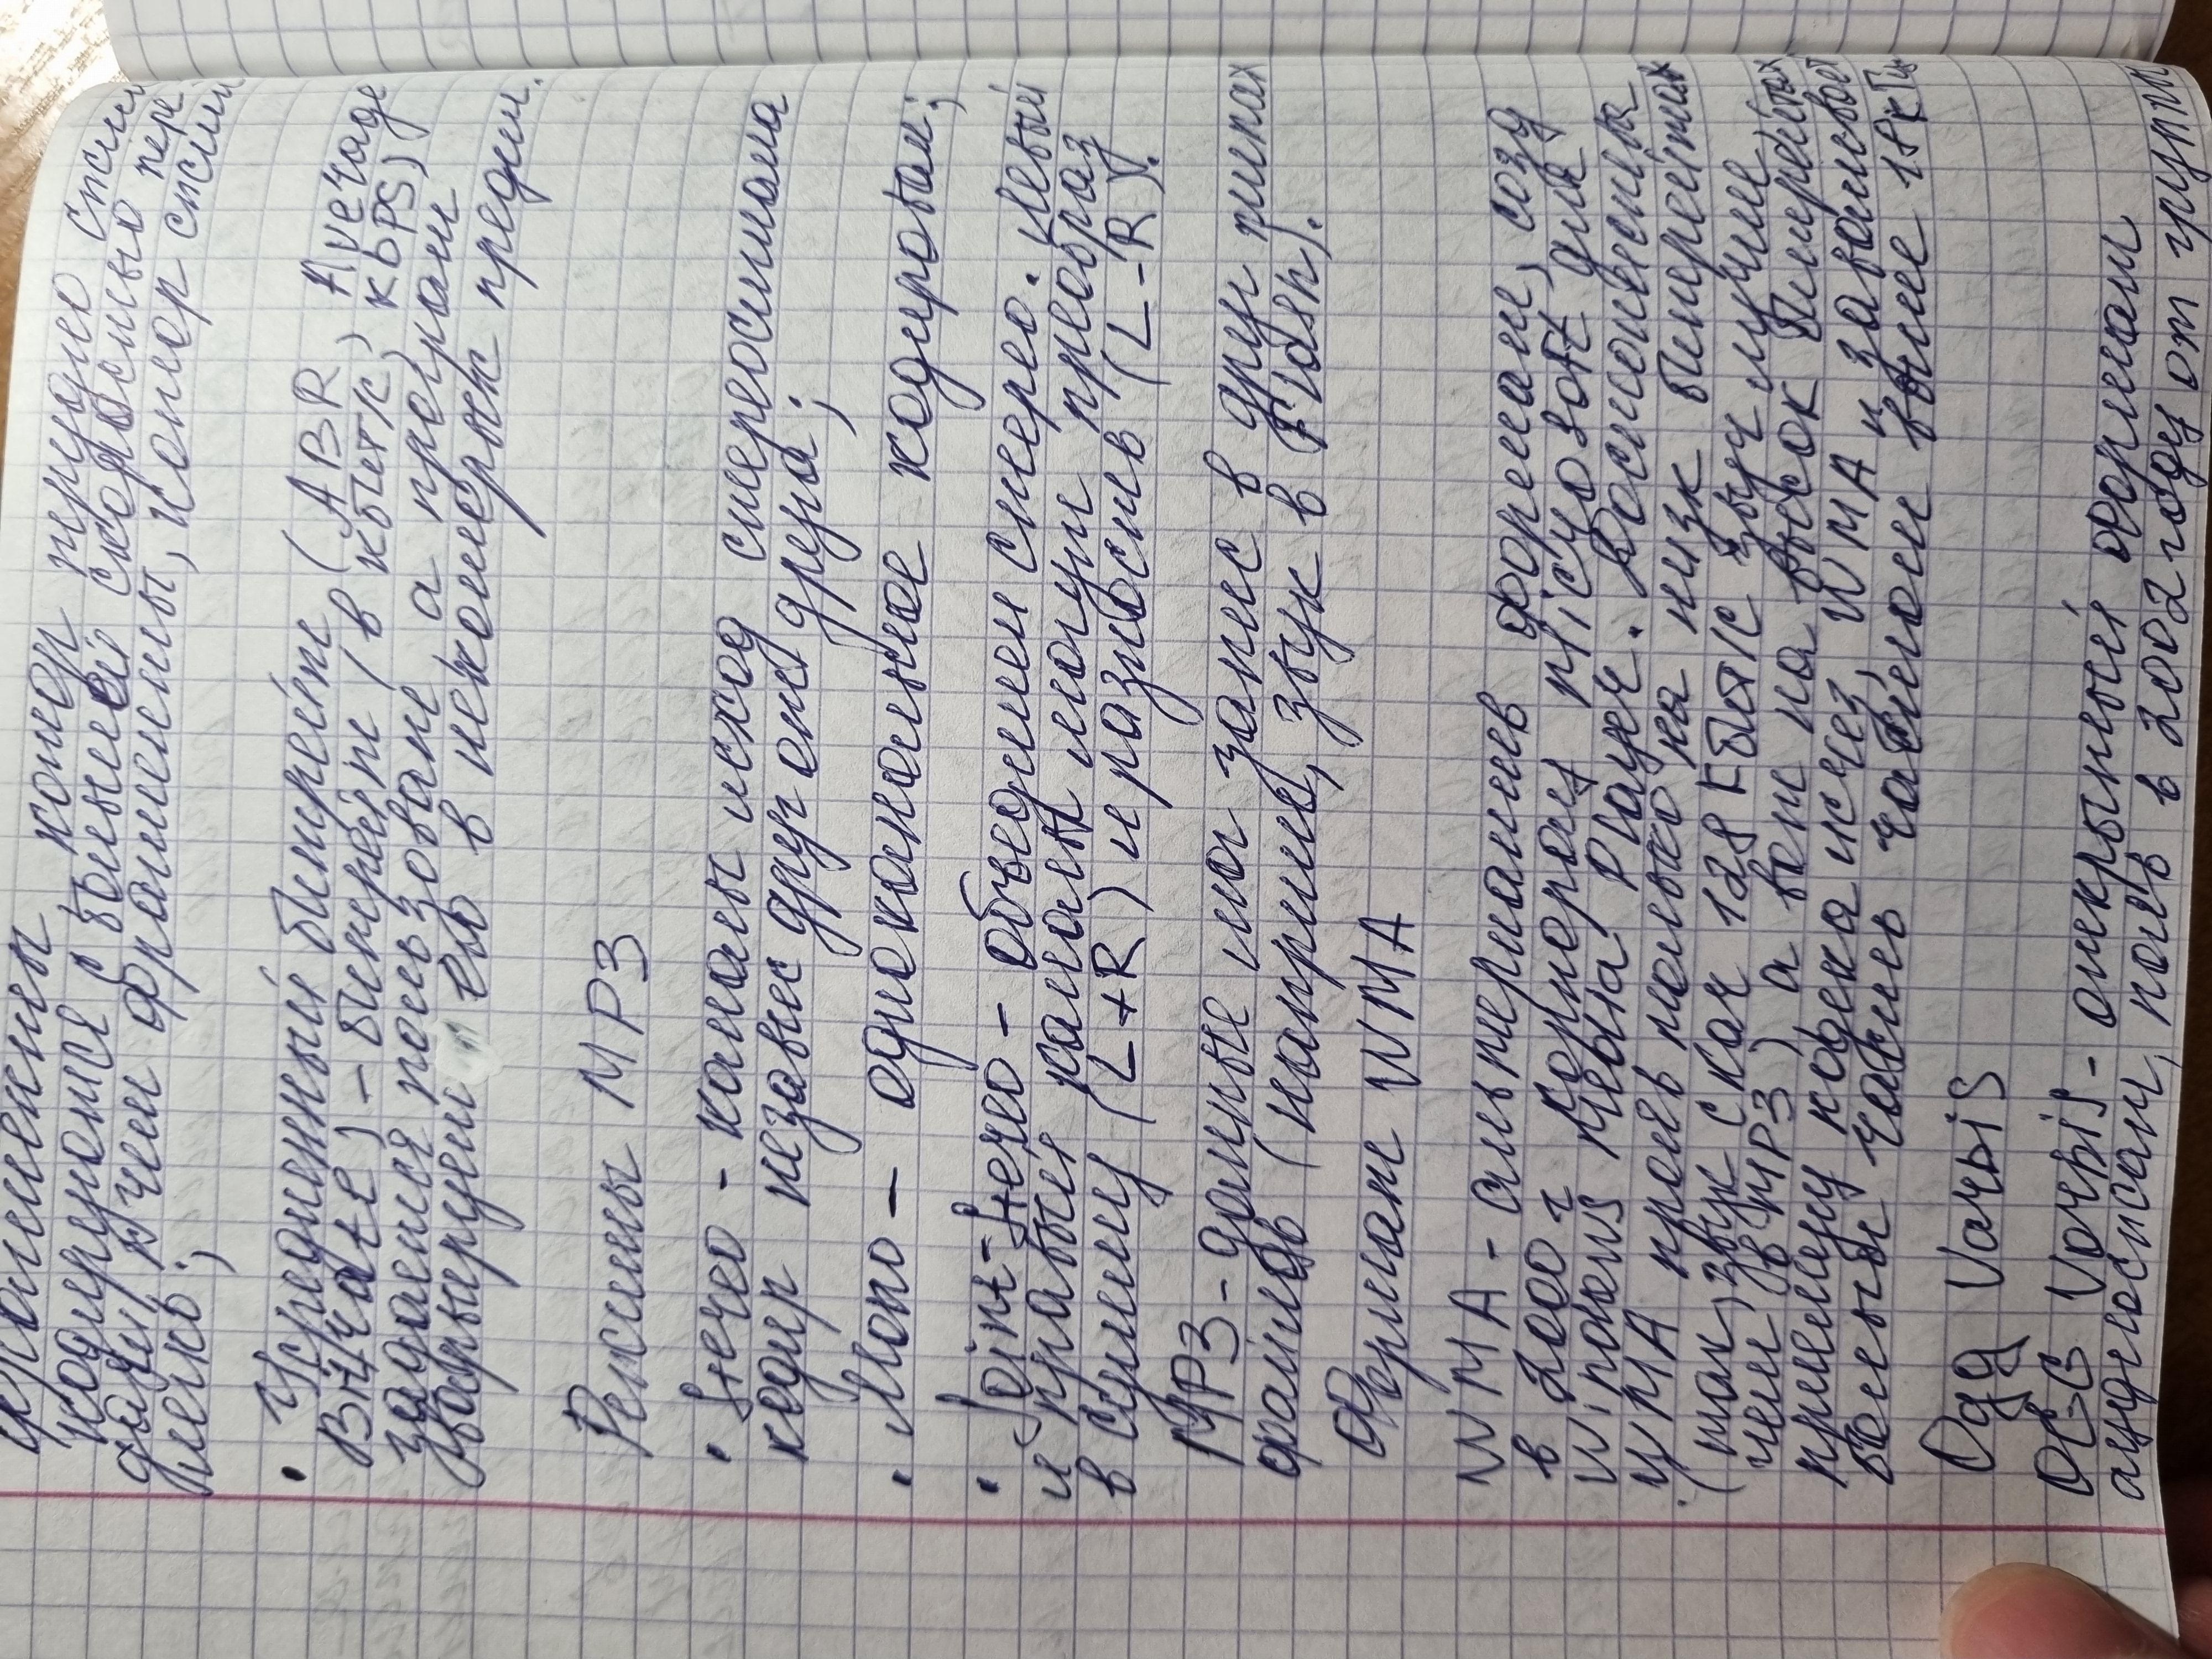 фрагменты, котор трудно сжим
кодируются с большей скоростью пере
дачи, чем фрагменты, котор сжим
легко;
• Усредненный битрейт (ABR, Average
Bitrate) – битрейт (в кбит/с, kbps)
задается пользоват, а програм
варьирует его в некоторых предел.
Режимы MP3
• Stereo – каналы исход стереосигнала
кодир независ друг от друга;
• Mono – одноканальное кодирован;
• Joint-Stereo – объединен стерео. Левый
и правый каналы могут преобраз
в сумму (L+R) и разность (L-R).
MP3-данные мог запис в друг типах
файлов (наприме, звук в Flash).
Формат WMA
WMA – альтернатив формат, созд
в 2000 г корпорац Microsoft для
Windows Media Player. Достоинства
WMA прояв только на низк битрейтах
(так, звук с кач 128 кбит/с звуч лучше,
чем в MP3), а вот на высок битрейтах
преимущ кодека исчез, WMA заваливает
больш часть частот выше 18 кГц
Ogg Vorbis
OGG Vorbis – открытый формат
аудиосжат, появ в 2002 году от группы